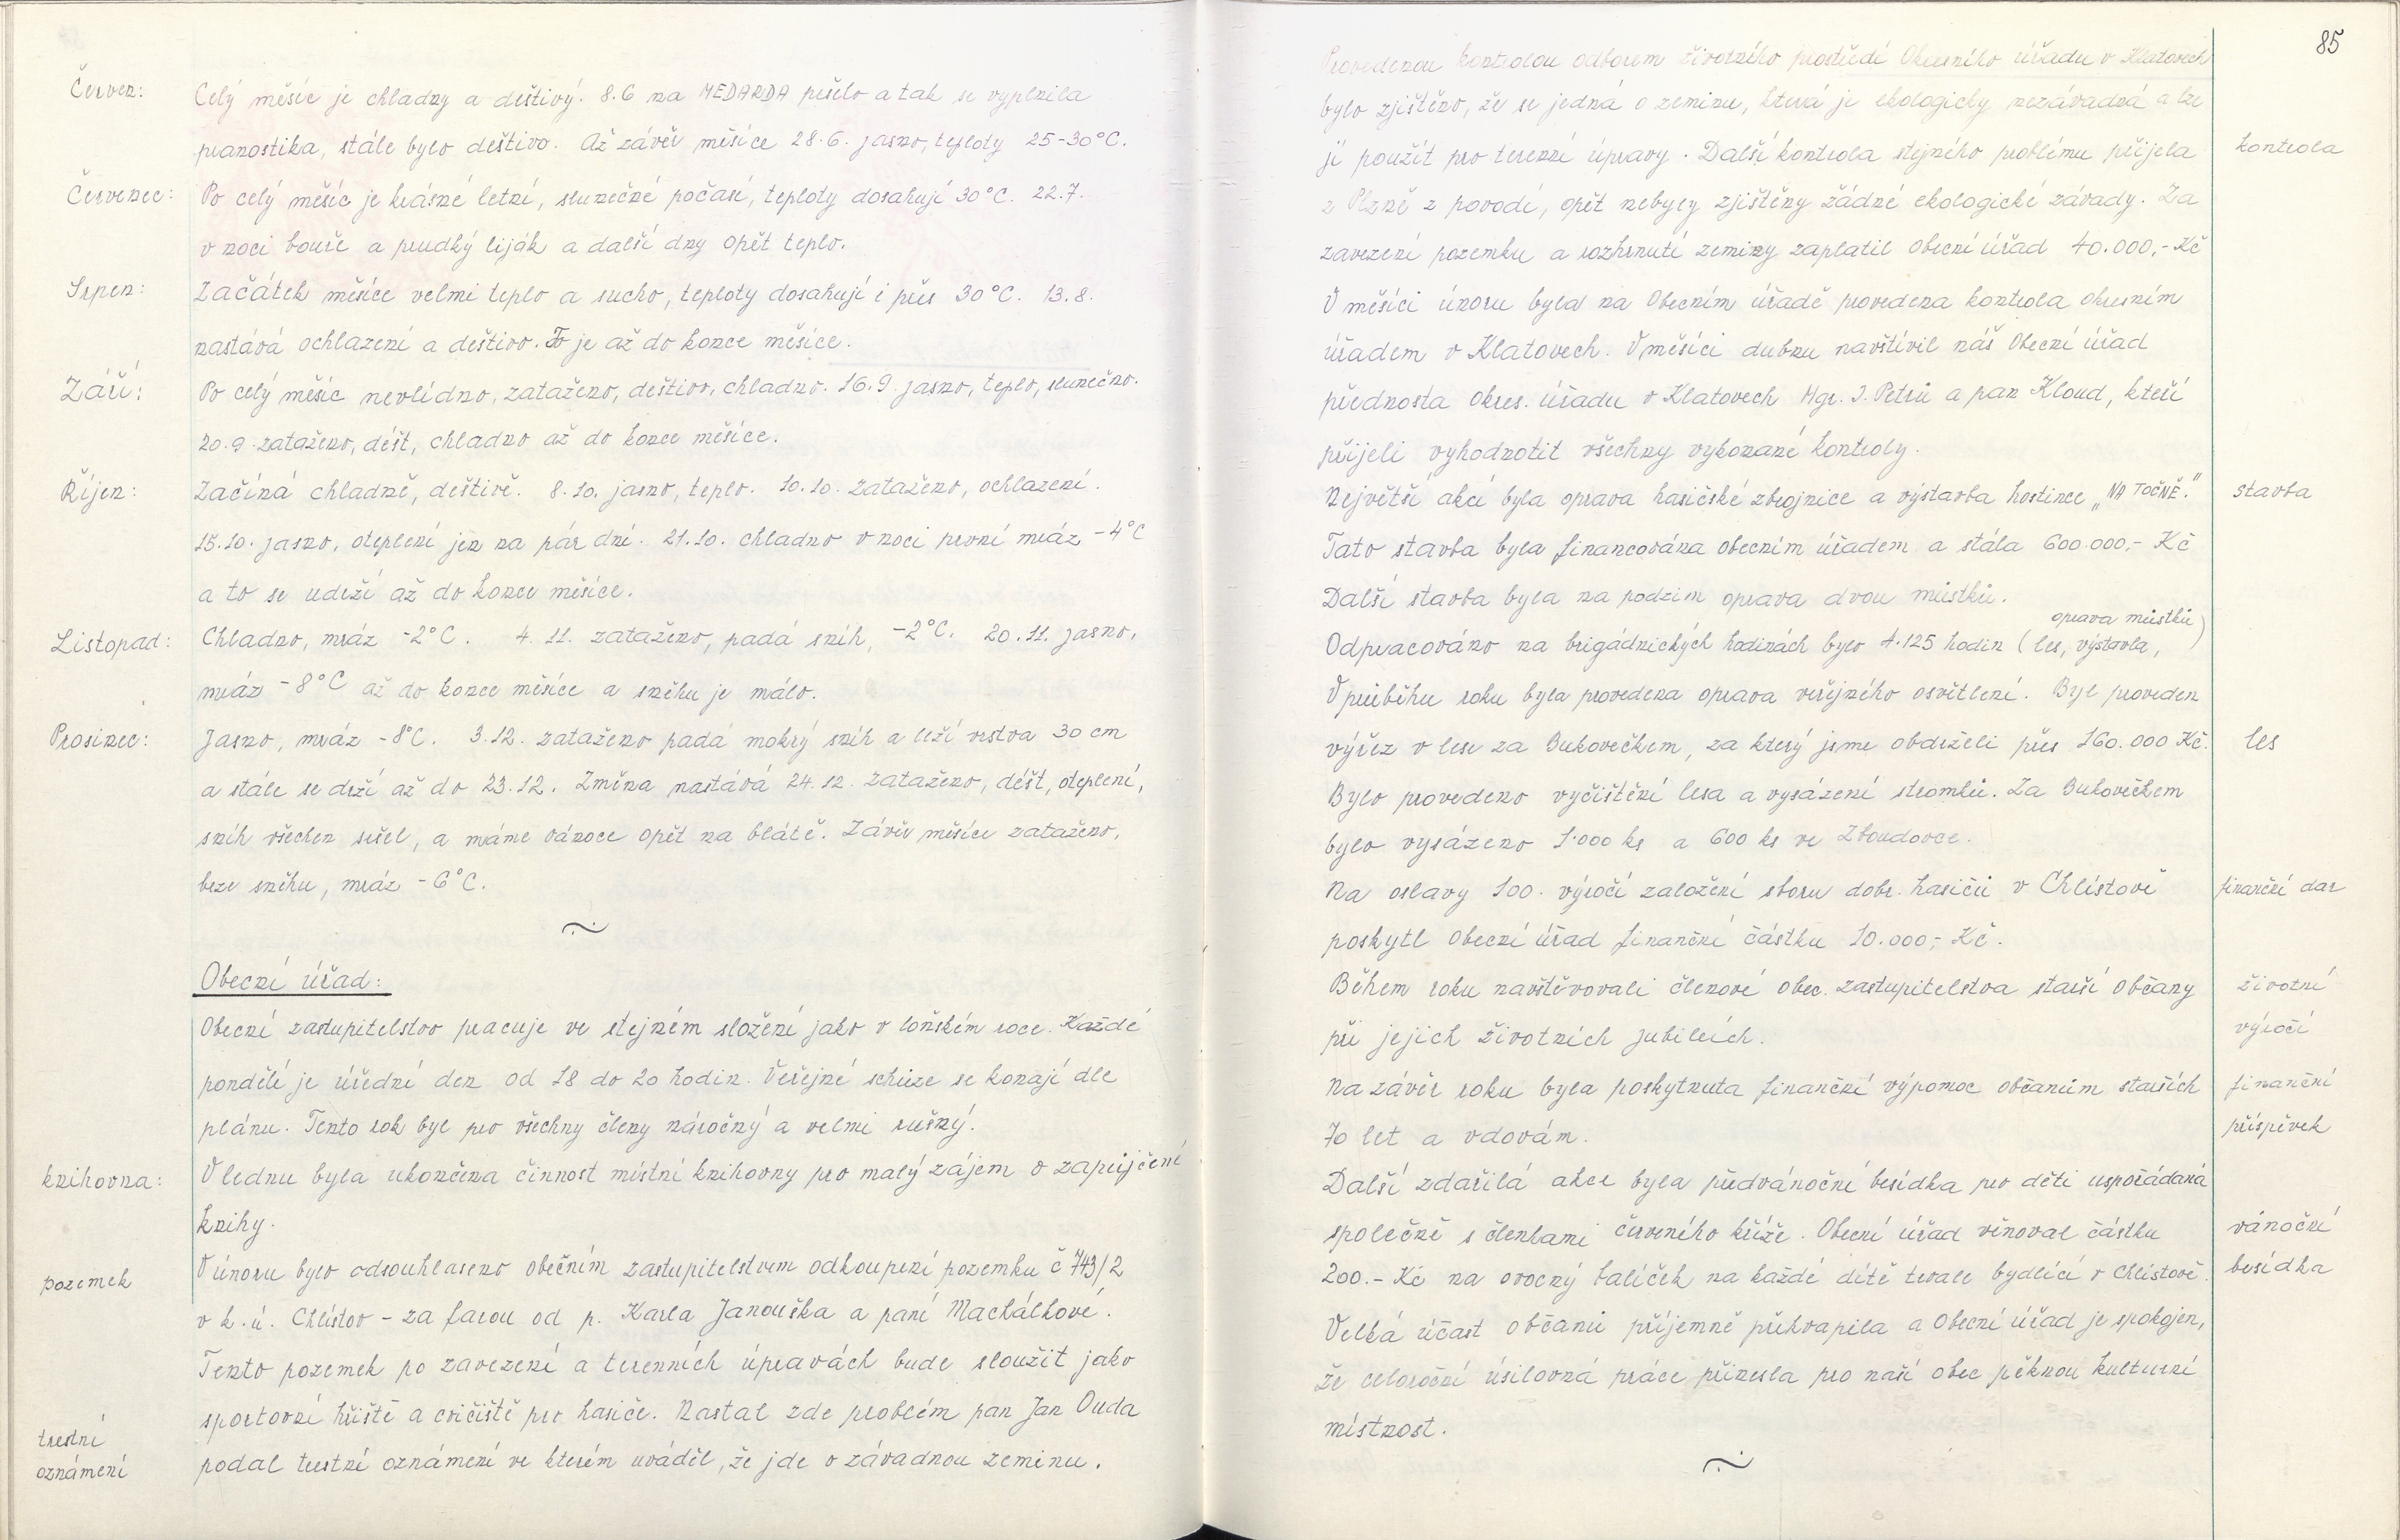 Červen:
Celý měsíc je chladný a deštivý. 8.6 na MEDARDA pršelo a tak se vyplnila
pranostika, stále bylo deštivo. Až závěr měsíce 28.6. jasno, teploty 25-30°C.
Červenec:
Po celý měsíc je krásné letní, slunečné počasí, teploty dosahují 30°C. 22.7.
v noci bouře a prudký liják a další dny opět teplo.
Srpen:
Začátek měsíce velmi teplo a sucho, teploty dosahují i přes 30°C. 13.8.
nastává ochlazení a deštivo. To je až do konce měsíce.
Září:
Po celý měsíc nevlídno, zataženo, deštivo, chladno. 16.9. jasno, teplo, slunečno.
20.9. zataženo, déšt, chladno až do konce měsíce.
Říjen:
Začíná chladně, deštivě. 8.10. jasno, teplo. 10.10. zataženo, ochlazení.
15.10. jasno, oteplení jen na pár dní. 21.10. chladno v noci první mráz -4°C
a to se udrží až do konce měsíce.
Listopad:
Chladno, mráz -2°C. 4.11. zataženo, padá sníh, -2°C. 20.11. jasno,
mráz -8°C až do konce měsíce a sněhu je málo.
Prosinec:
Jasno, mráz -8°C. 3.12. zataženo padá mokrý sníh a leží vrstva 30 cm
a stále se drží až do 23.12. Změna nastává 24.12. zataženo, déšt, oteplení,
sníh všechen sešel, a máme vánoce opět na blátě. Závěr měsíce zataženo,
beze sněhu, mráz -6°C.
Obecní úřad:
Obecní zastupitelstvo pracuje ve stejném složení jako v loňském roce. Každé
pondělí je úřední den od 18 do 20 hodin. Veřejné schůze se konají dle
plánu. Tento rok byl pro všechny členy náročný a velmi rušný.
knihovna:
V lednu byla ukončena činnost místní knihovny pro malý zájem o zapůjčení
knihy.
V únoru bylo odsouhlaseno obečním zastupitelstvem odkoupení pozemku č 743/2
pozemek
v k.ú. Chlístov - za farou od p. Karla Janouška a paní Machálkové.
Tento pozemek po zavezení a terenních úpravách bude sloužit jako
sportovní hřiště a cvičiště pro hasiče. Nastal zde problém pan Jan Duda
trestní
oznámení
podal trestní oznámení ve kterém uváděl, že jde o závadnou zeminu.
85
Provedenou kontrolou odborem životního prostředí Okresního úřadu v Klatovech
bylo zjištěno, že se jedná o zeminu, která je ekologicky nezávadná a lze
ji použít pro terenní úpravy. Další kontrola stejného problému přijela
kontrola
z Plzně z povodí, opět nebyly zjištěny žádné ekologické závady. Za
zavezení pozemku a rozhrnutí zeminy zaplatil Obecní úřad 40.000,- Kč
V měsíci únoru byla na Obecním úřadě provedena kontrola okresním
úřadem v Klatovech. V měsíci dubnu navštívil náš Obecní úřad
přednosta okres. úřadu v Klatovech Mgr. J. Petrů a pan Kloud, kteří
přijeli vyhodnotit všechny vykonané kontroly.
Největší akcí byla oprava hasičské zbrojnice a výstavba hostince „NA TOČNĚ."
stavba
Tato stavba byla financována obecním úřadem a stála 600.000,- Kč
Další stavba byla na podzim oprava dvou můstků.
oprava můstků)
Odpracováno na brigádnických hodinách bylo 4.125 hodin (les, výstavba,
V průběhu roku byla provedena oprava veřejného osvětlení. Byl proveden
výřez v lese za Bukovečkem, za který jsme obdrželi přes 160.000 Kč.
les
Bylo provedeno vyčištění lesa a vysázení stromků. Za Bukovečkem
bylo vysázeno 1.000 ks a 600 ks ve Zboudovce.
Na oslavy 100. výročí založení sboru dobr. hasičů v Chlístově
finanční dar
poskytl Obecní úřad finanční částku 10.000,- Kč.
Během roku navštěvovali členové obec. zastupitelstva starší občany
životní
při jejich životních jubileích.
výročí
Na závěr roku byla poskytnuta finanční výpomoc občanům starších
finanční
70 let a vdovám.
příspěvek
Další zdařilá akce byla předvánoční besídka pro děti uspořádaná
společně s členkami červeného kříže. Obecní úřad věnoval částku
vánoční
200.- Kč na ovocný balíček na každé dítě trvale bydlící v Chlístově.
besídka
Velká účast občanů příjemně překvapila a Obecní úřad je spokojen,
že celoroční úsilovná práce přinesla pro naší obec pěknou kulturní
místnost.